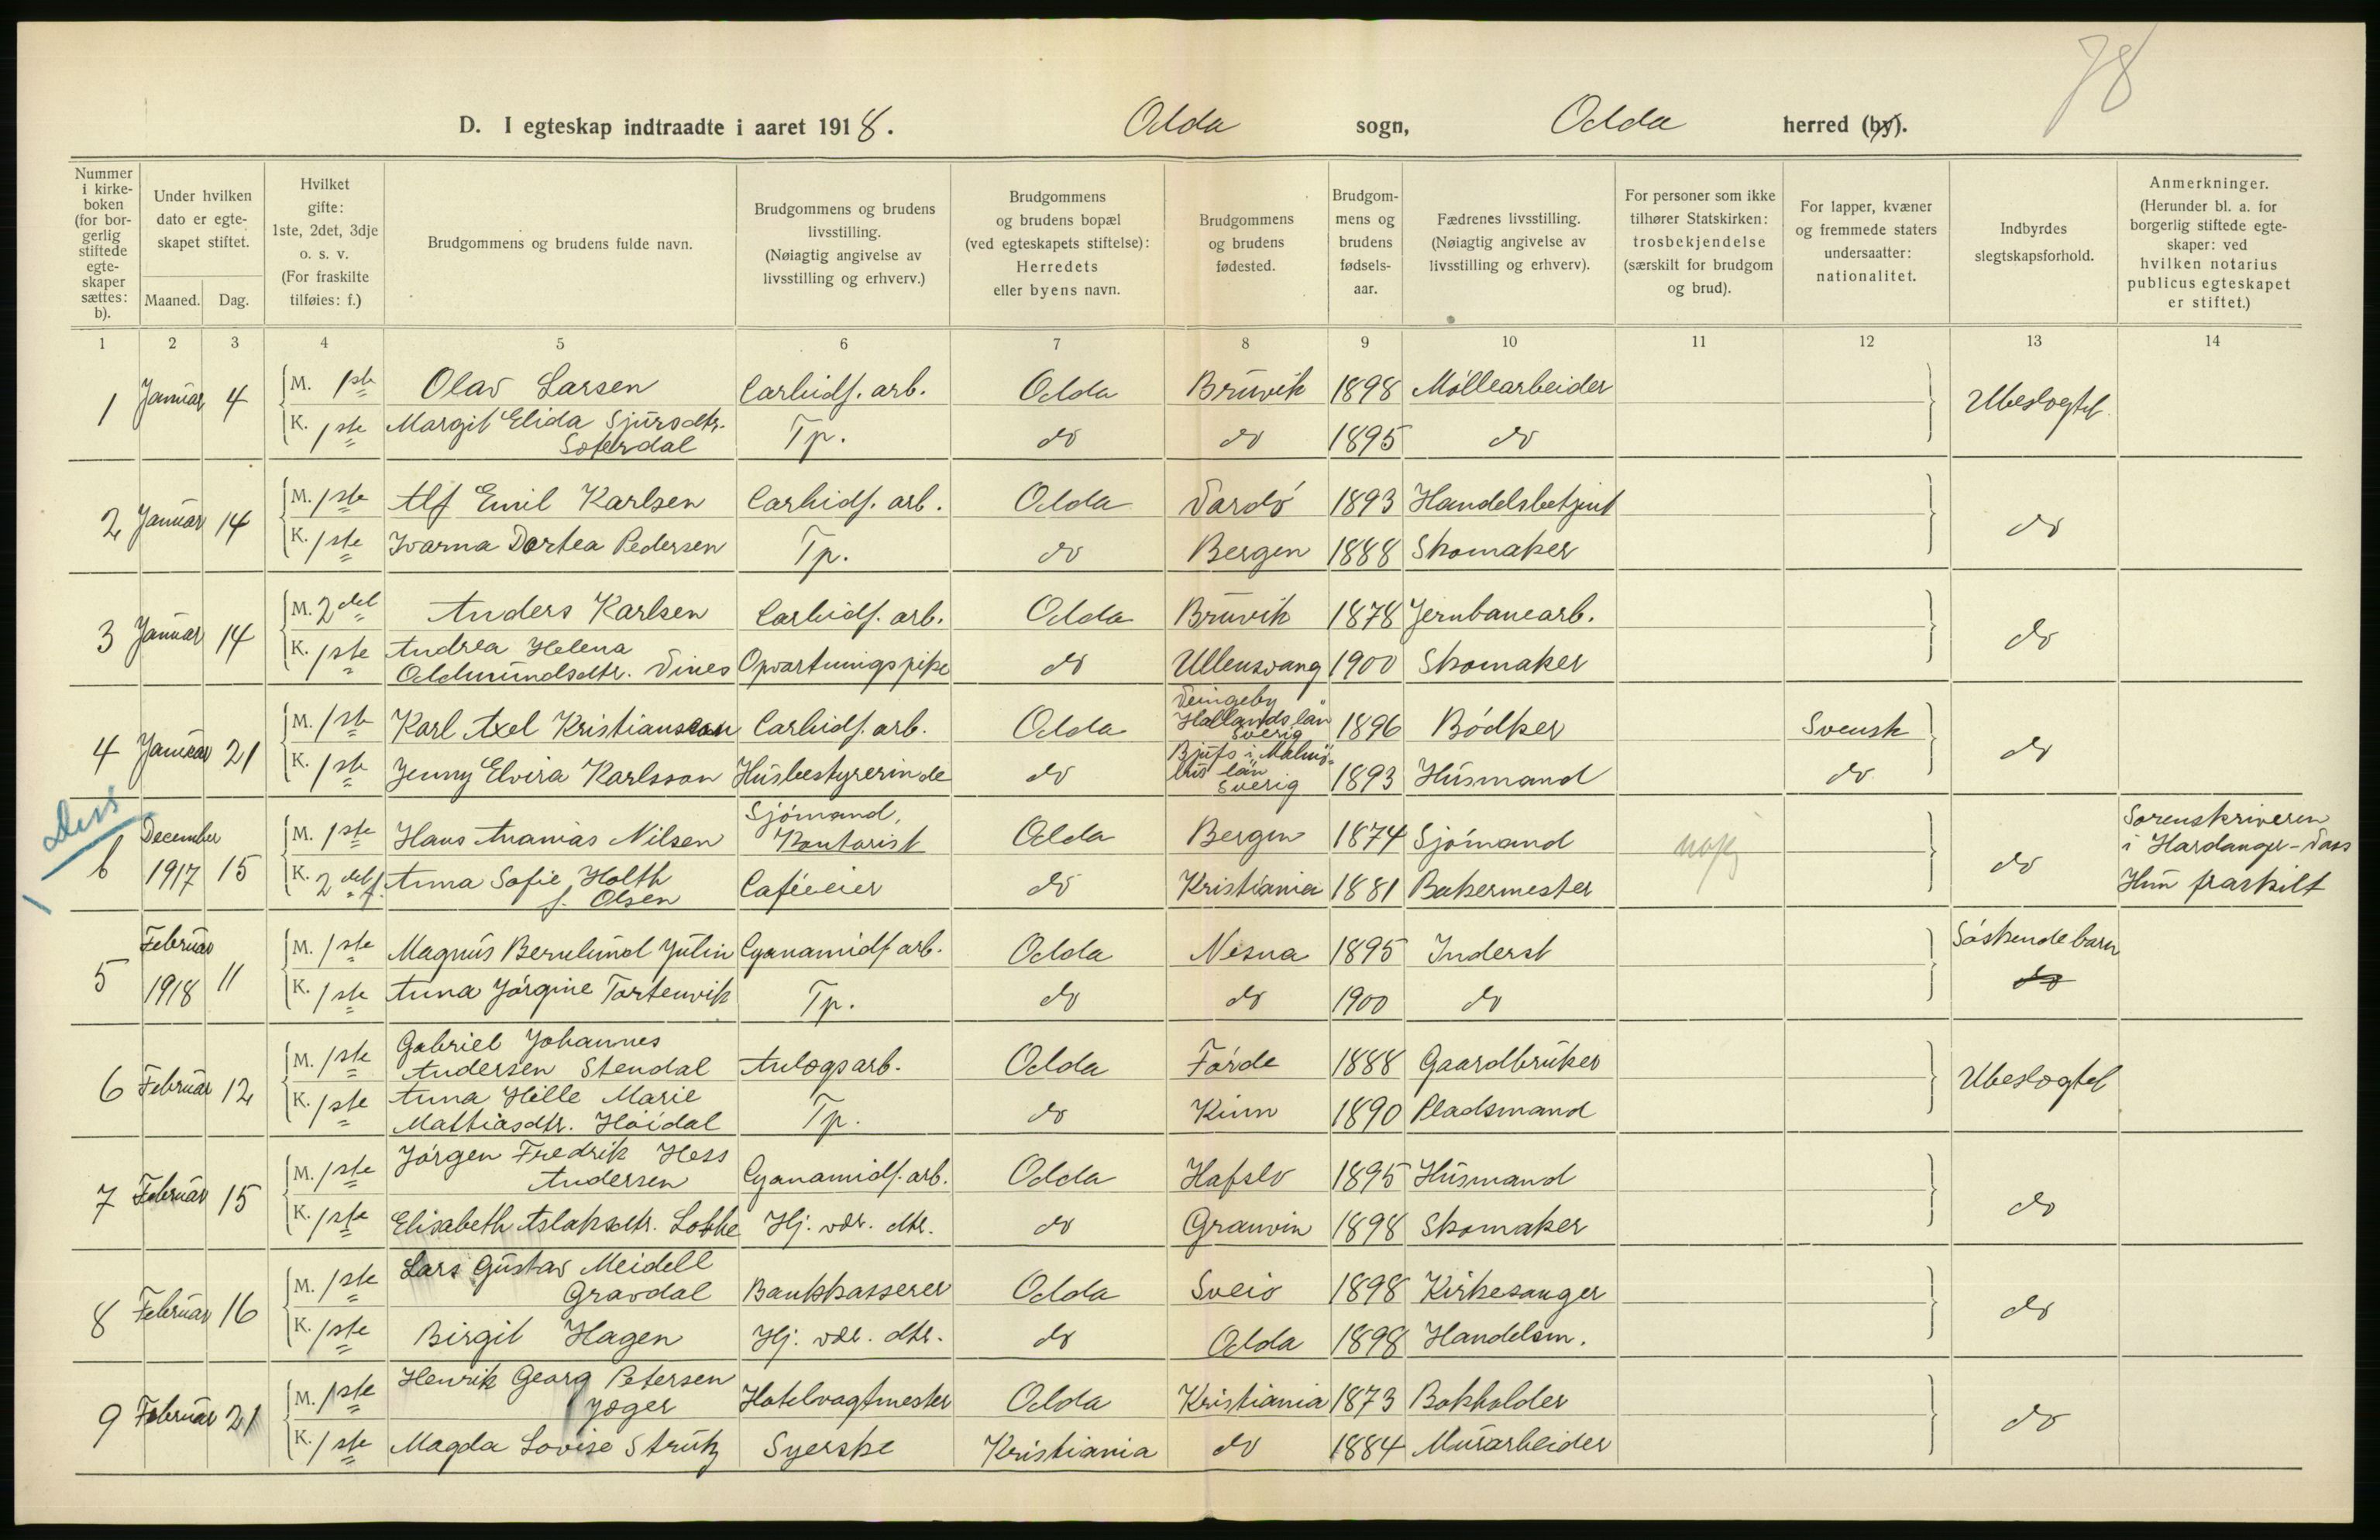 78
D. I egteskap indtraadte i aaret 1918. Odda sogn, Odda herred (by).
Nummer i kirke-boken (for bor-gerlig stiftede egte-skaper sættes: b).
Under hvilken dato er egte-skapet stiftet.
Maaned. Dag.
Hvilket gifte: 1ste, 2det, 3dje o. s. v. (For fraskilte tilføies: f.)
Brudgommens og brudens fulde navn.
Brudgommens og brudens livsstilling. (Nøiagtig angivelse av livsstilling og erhverv.)
Brudgommens og brudens bopæl (ved egteskapets stiftelse): Herredets eller byens navn.
Brudgommens og brudens fødested.
Brudgom-mens og brudens fødsels-aar.
Fædrenes livsstilling. (Nøiagtig angivelse av livsstilling og erhverv).
For personer som ikke tilhører Statskirken: trosbekjendelse (særskilt for brudgom og brud).
For lapper, kvæner og fremmede staters undersaatter: nationalitet.
Indbyrdes slegtskapsforhold.
Anmerkninger. (Herunder bl. a. for borgerlig stiftede egte-skaper: ved hvilken notarius publicus egteskapet er stiftet.)
1 2 3 4 5 6 7 8 9 10 11 12 13 14
1 Januar 4 M. 1ste Olav Larsen Carbidf. arb. Odda Bruvik 1898 Möllearbeider Ubeslegtet
K. 1ste Margit Elida Sjursdtr. Soterdal Tp. do do 1895 do
2 Januar 14 M. 1ste Alf Emil Karlsen Carbidf. arb. Odda Vardö 1893 Handelsbetjent do
K. 1ste Ivarna Dortea Pedersen Tp. do Bergen 1888 Skomaker
3 Januar 14 M. 2det Anders Karlsen Carbidf. arb. Odda Bruvik 1878 Jernbanearb. do
K. 1ste Andrea Helena Oddmundsdtr. Vines Opvartningspike do Ullensvang 1900 Skomaker
4 Januar 21 M. 1ste Karl Axel Kristiansson Carbidf. arb. Odda Veingeby Hallands län Sverig 1896 Bödker Svensk do
K. 1ste Jenny Elvira Karlsson Husbestyrerinde do Bjufs i Malmö-hus län Sverig 1893 Husmand do
b December 1917 15 M. 1ste Hans Ananias Nilsen Sjömand, Kontorist Odda Bergen 1874 Sjömand do Sorenskriveren i Hardanger-Voss
K. 2det f. Anna Sofie Holth f. Olsen Caféeier do Kristiania 1881 Bakermester Hun fraskilt
5 Februar 1918 11 M. 1ste Magnus Bernlund Julin Cyanamidf arb. Odda Nesna 1895 Inderst Söskendebarn
K. 1ste Anna Jörgine Tortenvik Tp. do do 1900 do do
6 Februar 12 M. 1ste Gabriel Johannes Andersen Stendal Anlegsarb. Odda Förde 1888 Gaardbruker Ubeslegtet
K. 1ste Anna Hille Marie Mathiasdtr. Höidal Tp. do Kinn 1890 Pladsmand
7 Februar 15 M. 1ste Jörgen Fredrik Hess Andersen Cyanamidf. arb. Odda Hafslo 1895 Husmand do
K. 1ste Elisabeth Aslaksdtr. Lothe Hj. vær. dtr. do Granvin 1898 Skomaker
8 Februar 16 M. 1ste Lars Gustav Meidell Gravdal Bankkasserer Odda Sveio 1898 Kirkesanger do
K. 1ste Birgit Hagen Hj. vær. dtr. do Odda 1898 Handelsm.
9 Februar 21 M. 1ste Henrik Georg Petersen Jæger Hotelvagtmester Odda Kristiania 1873 Bokholder do
K. 1ste Magda Lovise Strutz Syerske Kristiania do 1884 Murarbeider